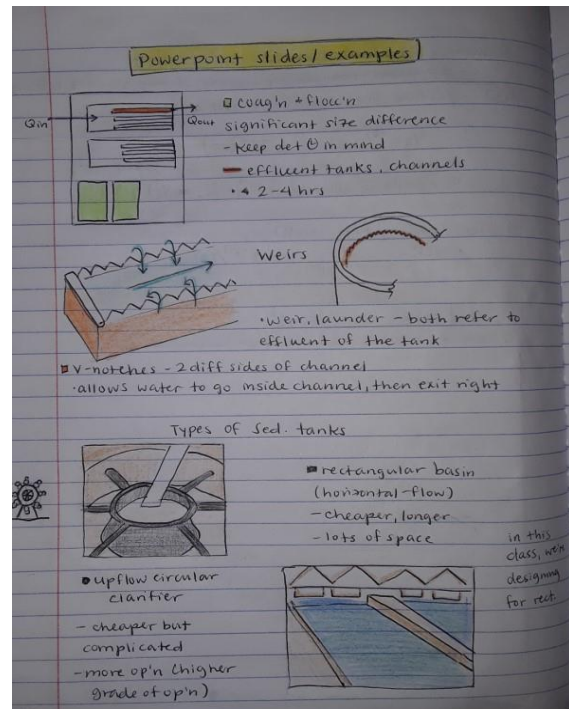 Powerpoint slides/examples
Qin
Qout
coag'n + flocc'n
significant size difference
- keep det in mind
effluent tanks, channels
2-4 hrs
Weirs
• weir, launder - both refer to
effluent of the tank
V-notches - 2 diff sides of channel
• allows water to go inside channel, then exit right
Types of sed. tanks
rectangular basin
(horizontal-flow)
- cheaper, longer
- lots of space
in this
class, we're
designing
for rect.
upflow circular
clarifier
- cheaper but
complicated
- more op'n (higher
grade of op'n)